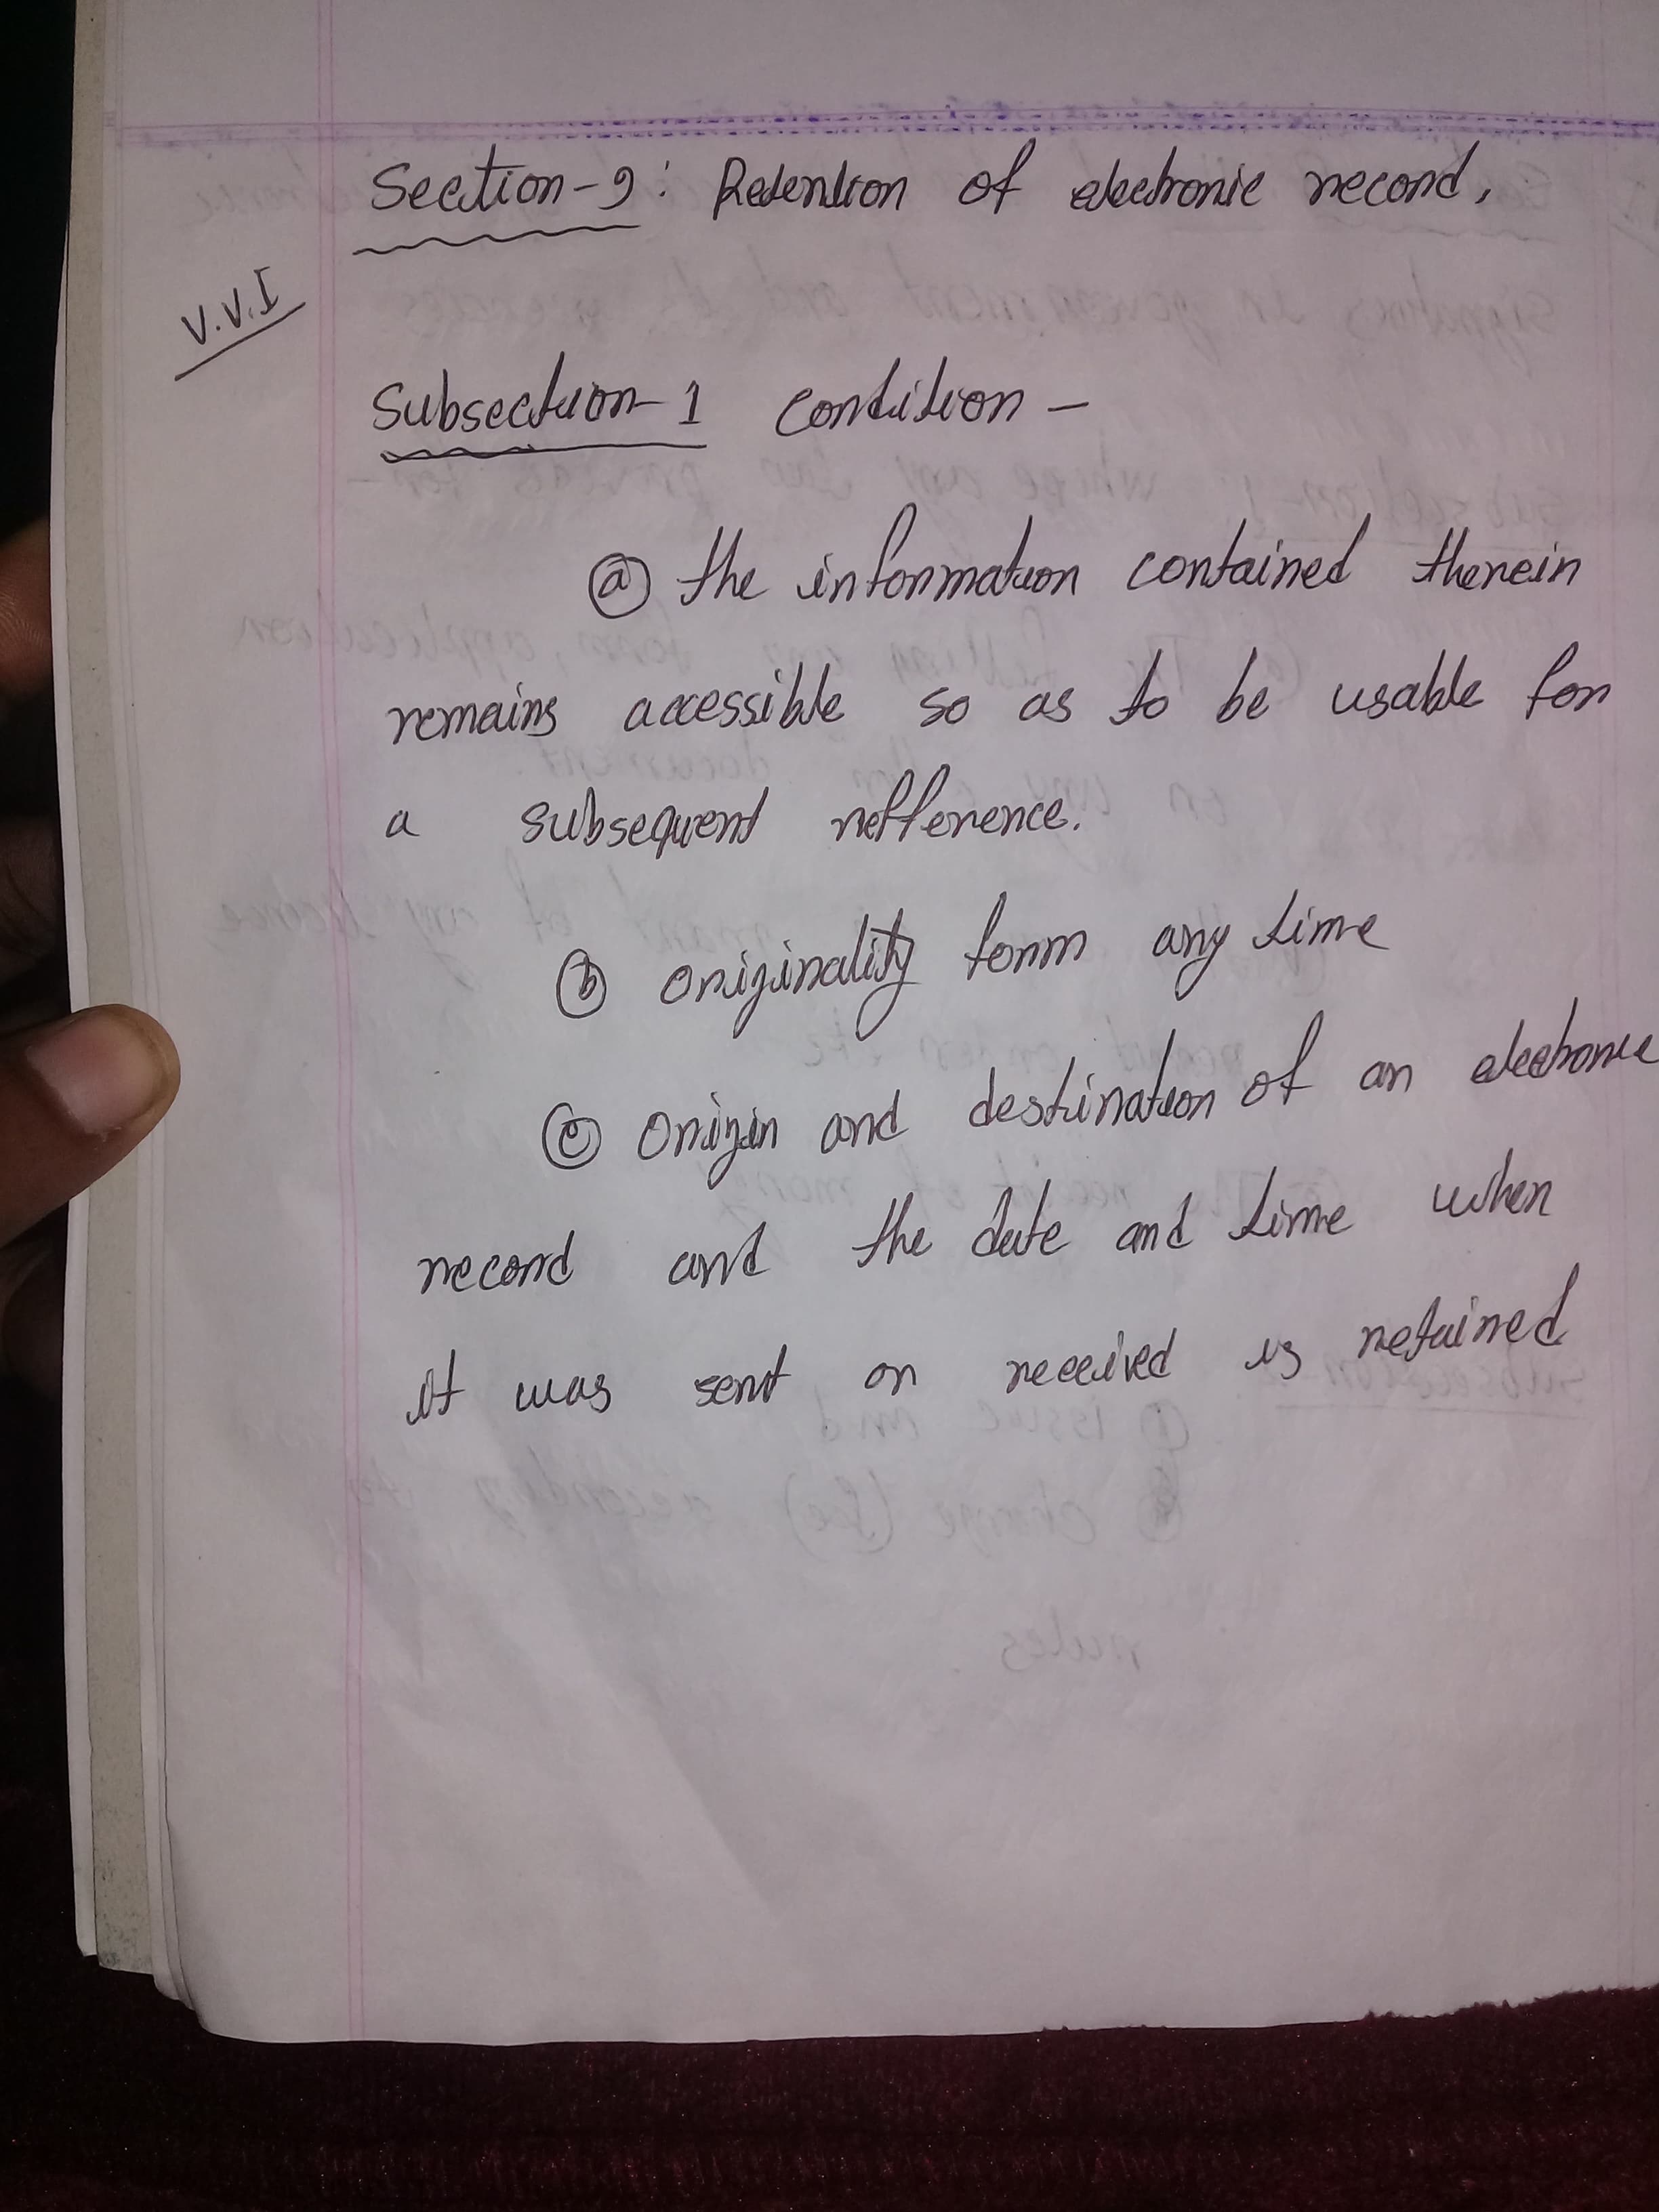 Section-9: Retention of electronic record.
V.V.I
Subsection-1 Condition -
(a) the information contained therein
remains accessible so as to be usable for
a subsequent refference.
(b) originality form any time
(c) Origin and destination of an electronic
record and the date and time when
it was sent or received is retained